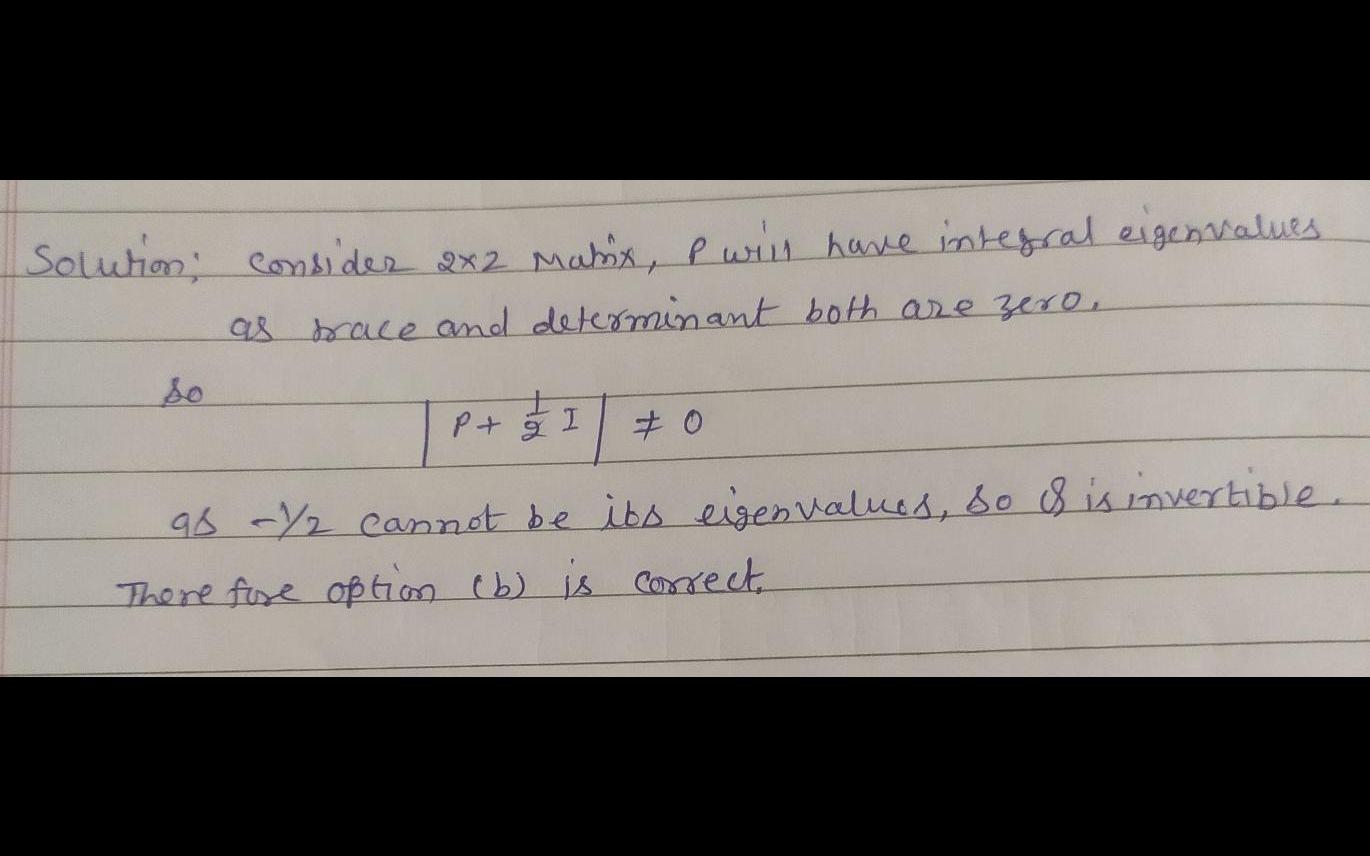 Solution: Consider 2×2 Matrix, P will have integral eigenvalues
as trace and determinant both are zero.
so
| P + 1/2 I | ≠ 0
as -1/2 cannot be its eigenvalues, so Q is invertible.
Therefore option (b) is correct.